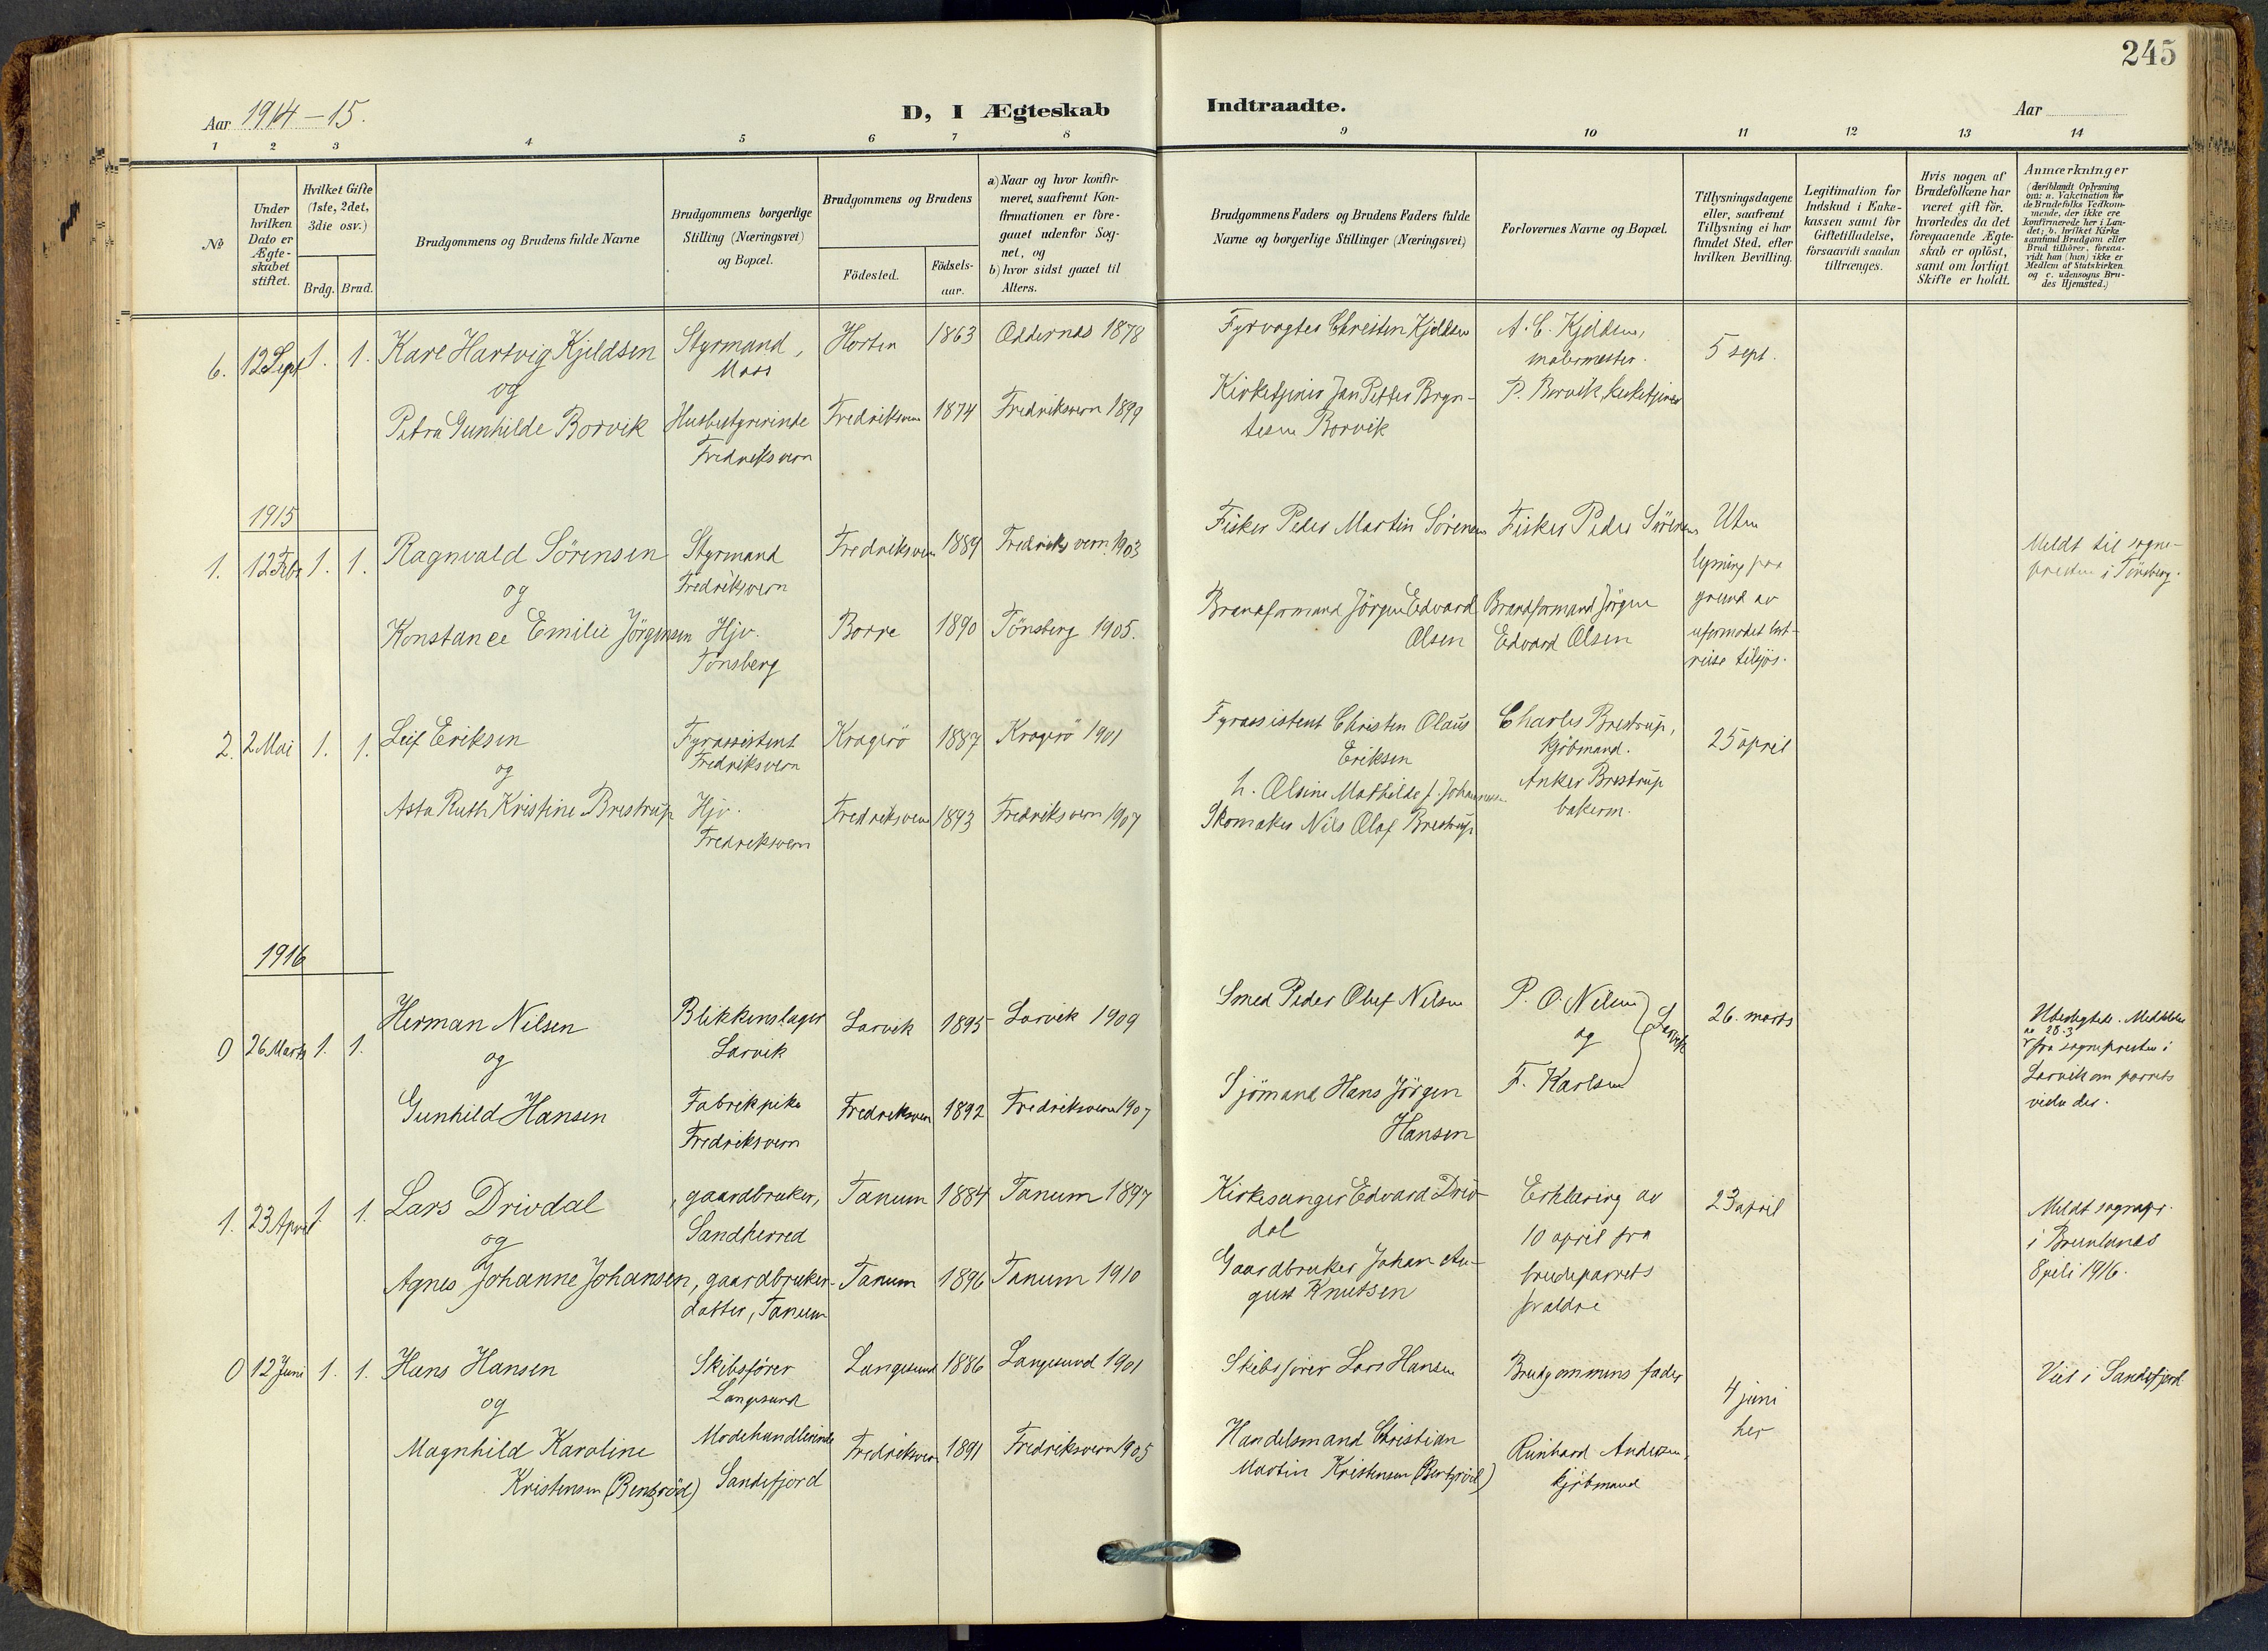 245
Aar 1914-15.
D, I Ægteskab Indtraadte.
Aar
1 2 3 4 5 6 7 8 9 10 11 12 13 14
№
Under hvilken Dato er Ægte-skabet stiftet.
Hvilket Gifte (1ste, 2det, 3die osv.)
Brdg. Brud.
Brudgommens og Brudens fulde Navne
Brudgommens borgerlige Stilling (Næringsvei) og Bopæl.
Brudgommens og Brudens
Födested.
Födsels-aar.
a) Naar og hvor konfir-meret, saafremt Kon-firmationen er fore-gaaet udenfor Sog-net, og
b) hvor sidst gaaet til Alters.
Brudgommens Faders og Brudens Faders fulde Navne og borgerlige Stillinger (Næringsvei)
Forlovernes Navne og Bopæl.
Tillysningsdagene eller, saafremt Tillysning ei har fundet Sted, efter hvilken Bevilling.
Legitimation for Indskud i Enke-kassen samt for Giftetilladelse, forsaavidt saadan tiltrænges.
Hvis nogen af Brudefolkene har været gift för, hvorledes da det foregaaende Ægte-skab er oplöst, samt om lovligt Skifte er holdt.
Anmærkninger
(deriblandt Oplysning om: a. Vakcination for de Brudefolks Vedkom-mende, der ikke ere konfirmerede her i Lan-det; b. hvilket Kirke-samfund Brudgom eller Brud tilhörer, forsaa-vidt han (hun) ikke er Medlem af Statskirken og c. udensogns Bru-des Hjemsted.)
6. 12 Sept 1. 1. Kare Hartvig Kjeldsen Styrmand, Horten 1863 Oddernes 1878 Fyrvogter Christen Kjeldsen A. C. Kjeldsen, 5 sept.
og Moss malermester.
Petra Gunhilde Borvik Husbestyrerinde Fredriksvern 1874 Fredriksvern 1899 Kirketjener Jan Petter Bryn- P. Borvik, kirketjener
Fredriksvern tesen Borvik
1915
1. 12 Febr 1. 1. Ragnvald Sörensen Styrmand Fredriksvern 1889 Fredriksvern 1903 Fisker Peder Martin Sörensen Fisker Peder Sörensen Uten
og Fredriksvern lysning paa Meldt til sogne-
Konstance Emilie Jörgensen Hjv. Borre 1890 Tönsberg 1905. Brandformand Jörgen Edvard Brandformand Jörgen grund av presten i Tönsberg.
Tönsberg Olsen Edvard Olsen uformodet bort-
reise tilsjös.
2. 2 Mai 1. 1. Leif Eriksen Fyrassistent Kragerö 1887 Kragerö 1901 Fyrassistent Christen Olaus Charles Brestrup, 25 april
og Fredriksvern Eriksen kjöbmand.
h. Olsine Mathilde f. Johannesen Anker Brestrup
Asta Ruth Kristine Brestrup Hjv. Fredriksvern 1893 Fredriksvern 1907 Skomaker Nils Olaf Brestrup bakerm.
Fredriksvern
1916
0 26 Marts 1. 1. Herman Nilsen Blikkenslager Larvik 1895 Larvik 1909 Smed Peder Oluf Nilsen P. O. Nilsen Larvik 26. marts
og Larvik og
Gunhild Hansen Fabrikpike Fredriksvern 1892 Fredriksvern 1907 Sjömand Hans Jörgen F. Karlsen
Fredriksvern Hansen
av 28.3
fra sognepresten i
Larvik om parrets
vielse der.
1. 23 April 1. 1. Lars Drivdal gaardbruker, Tanum 1884 Tanum 1897 Kirkesanger Edvard Driv- Erklæring av 23 april Meldt sognepr.
og Sandherred dal 10 april fra i Brunlanes
Agnes Johanne Johansen, gaardbruker- Tanum 1896 Tanum 1910 Gaardbruker Johan Au- brudeparrets 8 juli 1916.
datter, Tanum gust Knutsen foraldre
0 12 Juni 1. 1. Hans Hansen Skibsförer Langesund 1886 Langesund 1901 Skibsförer Lars Hansen Brudgommens fader 4 juni Viet i Sandefjord
og Langesund her
Magnhild Karoline Modehandlerinde Fredriksvern 1891 Fredriksvern 1905 Handelsmand Christian Reinhard Andersen,
Kristensen (Bentsröd) Sandefjord Martin Kristensen (Bentsröd) kjöbmand